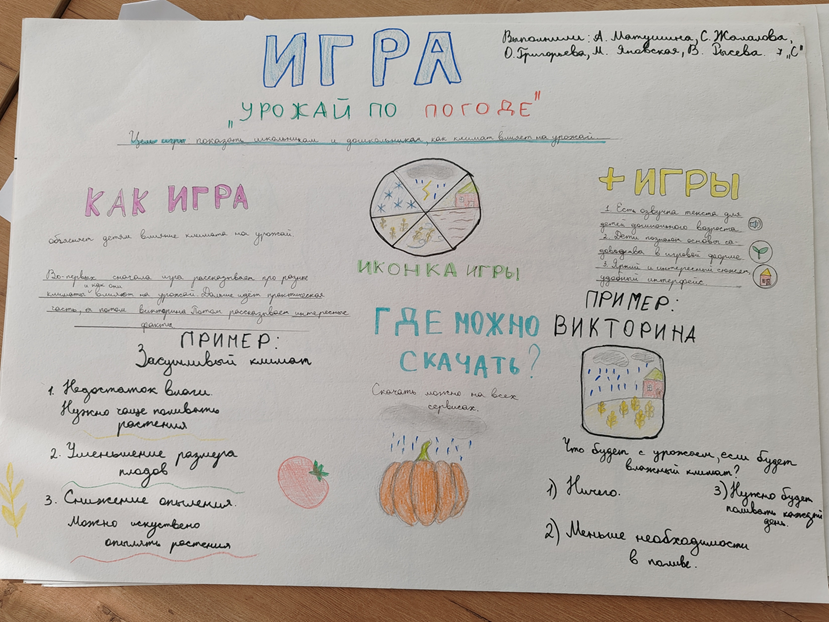 ИГРА
Выполнили: А. Матушина, С. Жалалова,
О. Григорьева, М. Яновская, В. Рысева. 7 „С"
„УРОЖАЙ ПО ПОГОДЕ"
Цель игры показать школьникам и дошкольникам, как климат влияет на урожай.
КАК ИГРА
объясняет детям влияние климата на урожай
Во-первых сначала игра рассказывает про разные
и как они
климаты влияют на урожай. Дальше идет практическая
часть, а потом викторина. Потом рассказывает интересные
факты
ПРИМЕР:
Засушливый климат
1. Недостаток влаги.
Нужно чаще поливать
растения
2. Уменьшение размера
плодов
3. Снижение опыления.
Можно искуствено
опылять растения
ИКОНКА ИГРЫ
ГДЕ МОЖНО
СКАЧАТЬ?
Скачать можно на всех
сервисах.
+ ИГРЫ
1. Есть озвучка текста для
детей дошкольного возраста
2. Дети познают основы са-
доводства в игровой форме
3. Яркий и интересный сюжет,
удобный интерфейс
ПРИМЕР:
ВИКТОРИНА
Что будет с урожаем, если будет
влажный климат?
1) Ничего.
3) Нужно будет
поливать каждый
день.
2) Меньше необходимости
в поливе.